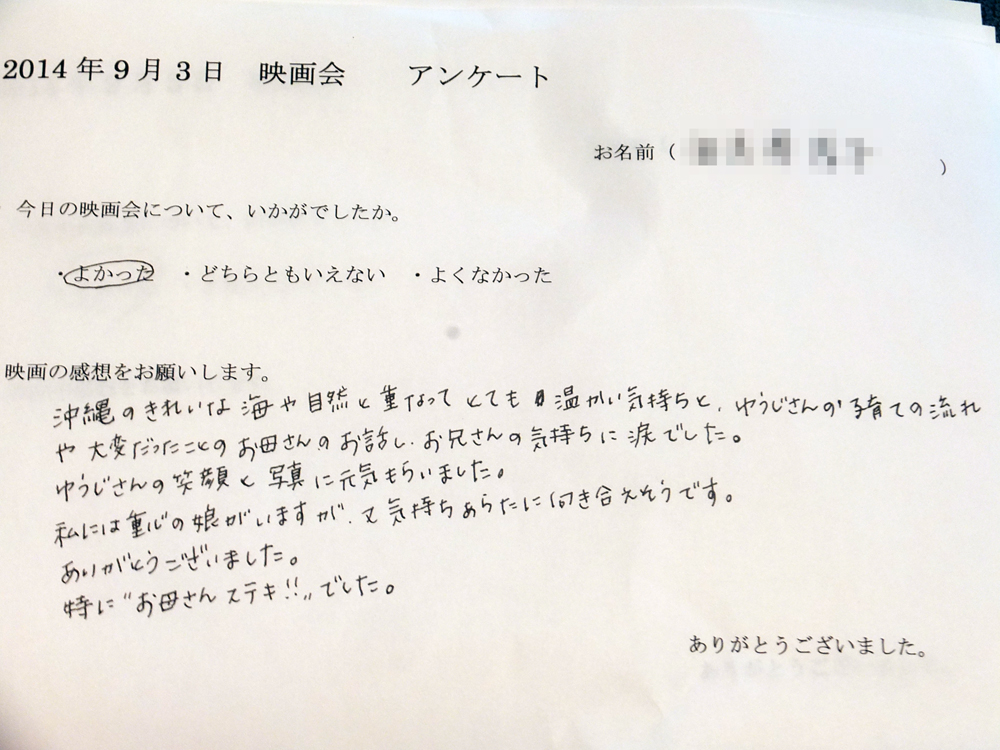 2014年9月3日 映画会 アンケート
お名前( )
今日の映画会について、いかがでしたか。
・よかった ・どちらともいえない ・よくなかった
映画の感想をお願いします。
沖縄のきれいな海や自然と重なってとても温かい気持ちと、ゆうじさんの子育ての流れ
や大変だったことのお母さんのお話し、お兄さんの気持ちに涙でした。
ゆうじさんの笑顔と写真に元気もらいました。
私には重心の娘がいますが、又気持ちあらたに向き合えそうです。
ありがとうございました。
特に"お母さんステキ!!"でした。
ありがとうございました。